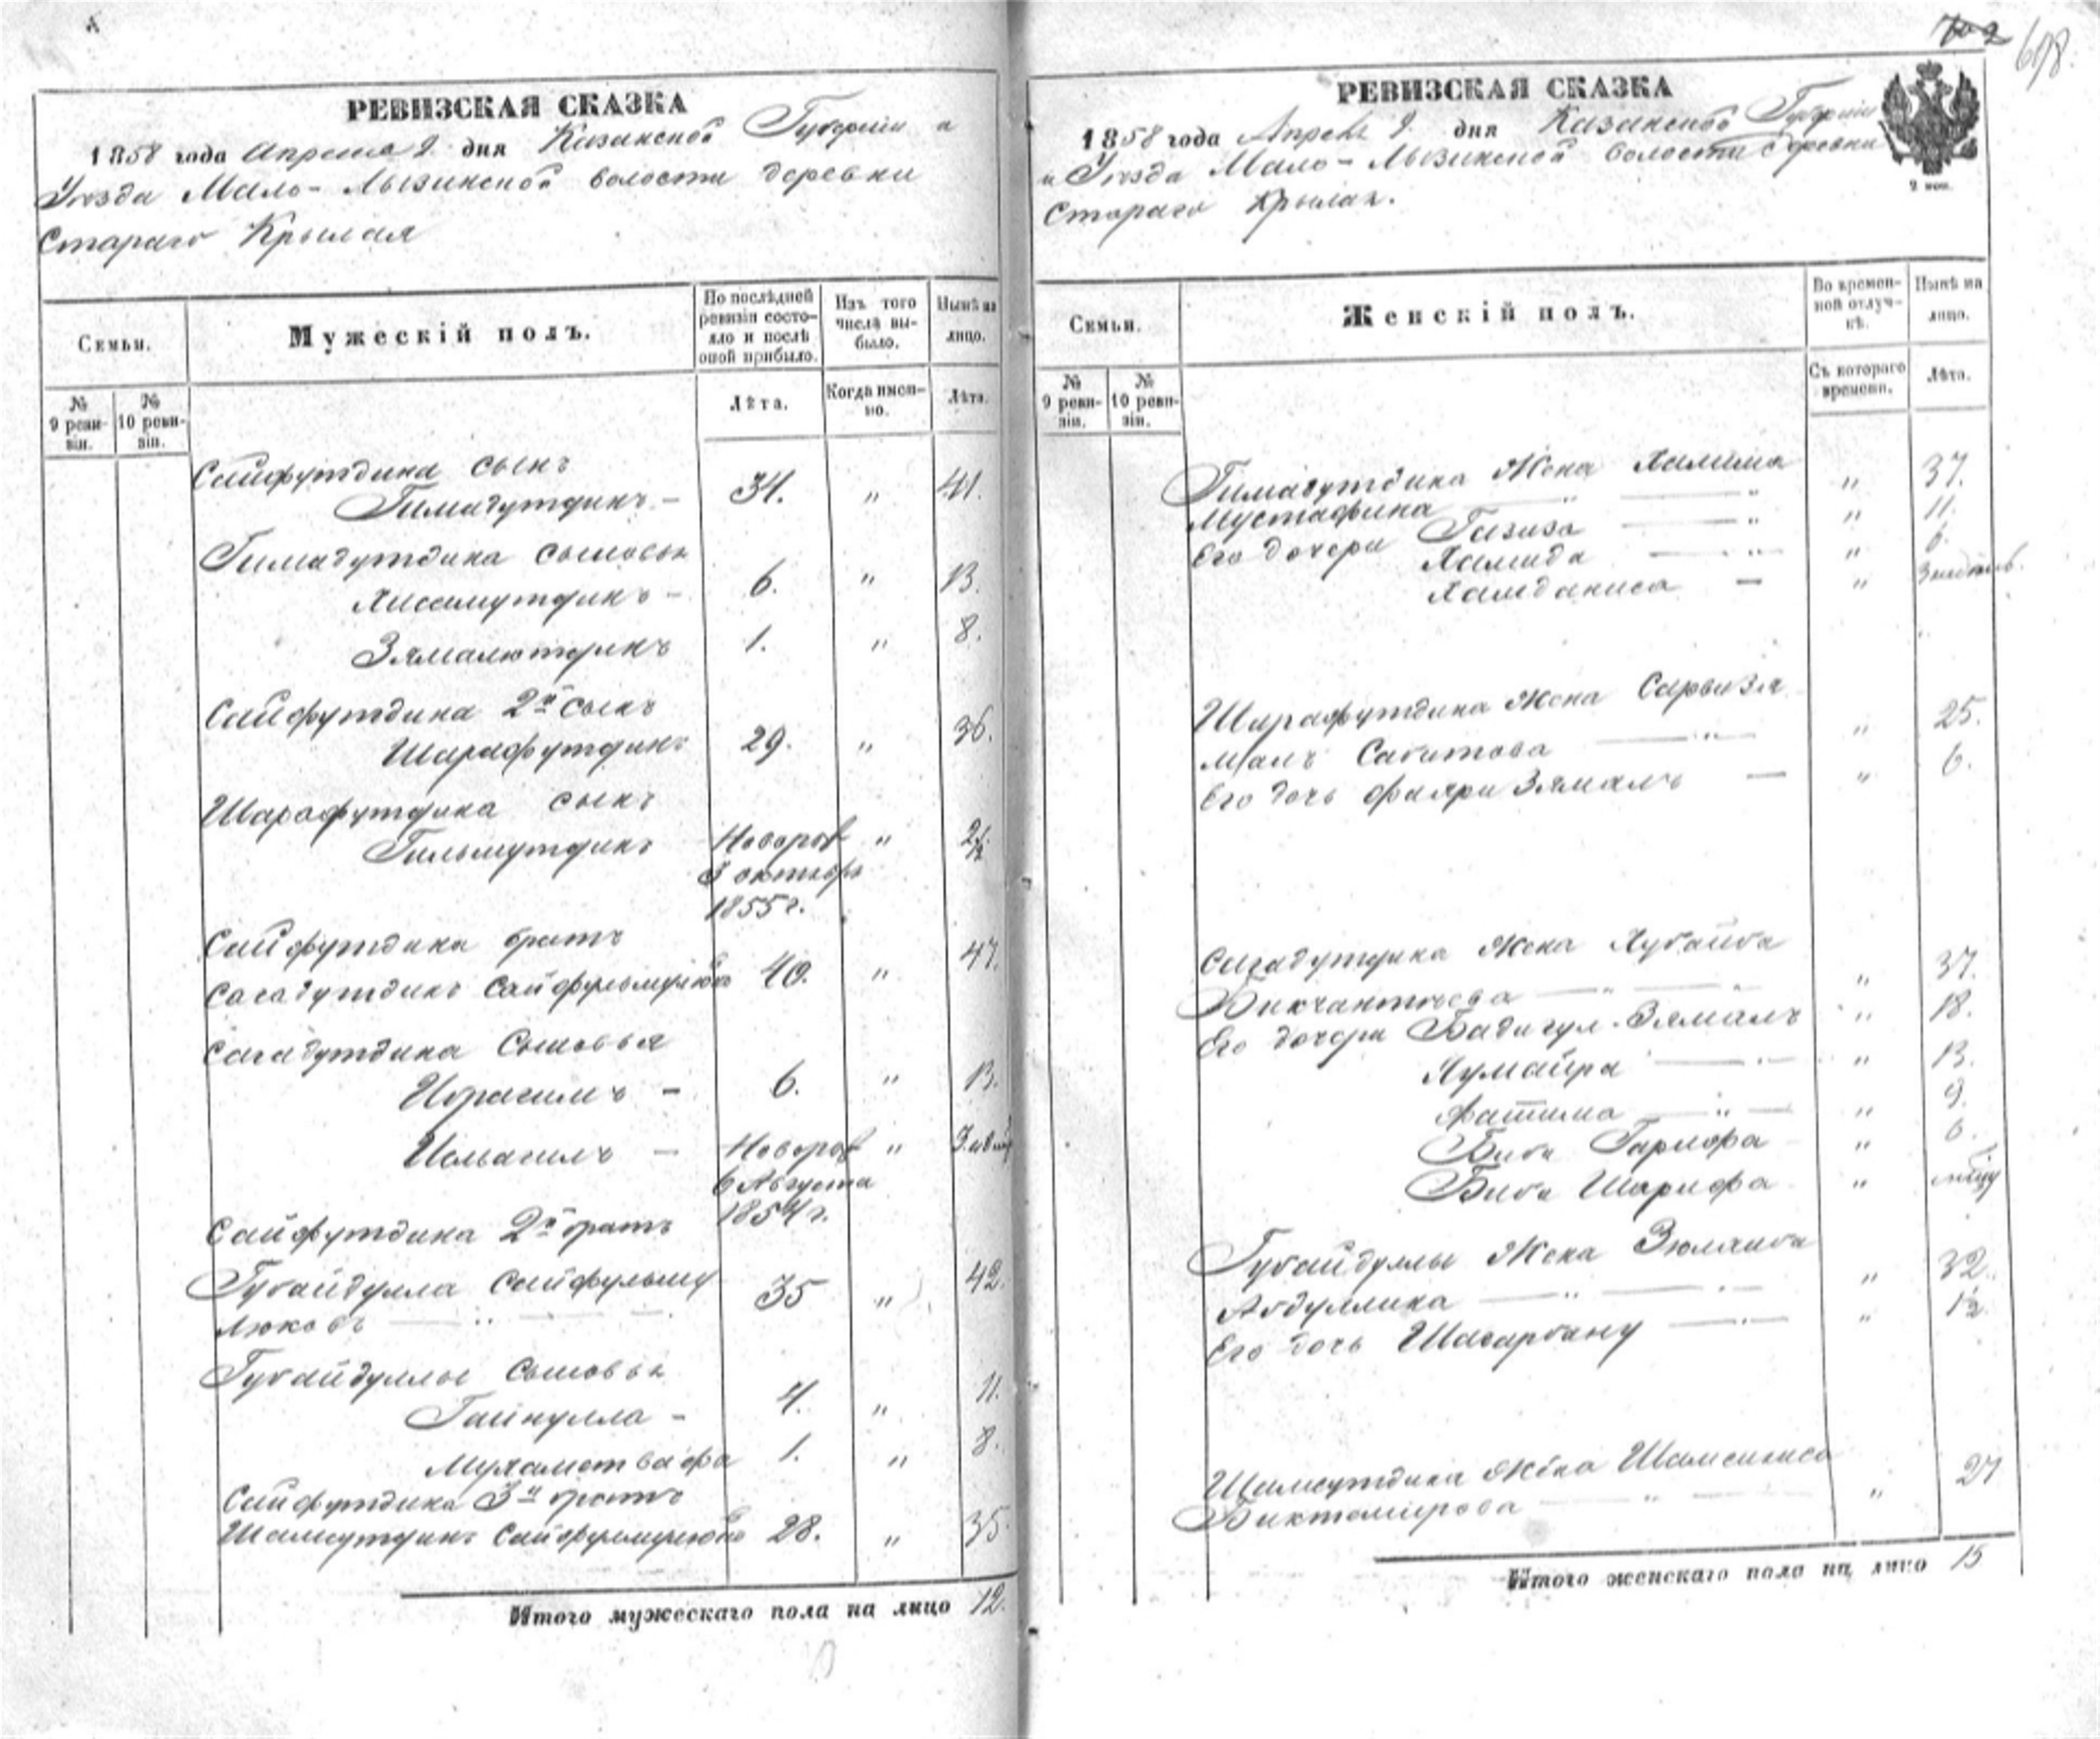 РЕВИЗСКАЯ СКАЗКА
1858 года Апреля 9 дня Казанской Губернии и
Уезда Мало-Лызинской волости деревни
Стараго Крылая
Семьи.
Мужескій полъ.
По послѣдней ревизіи состояло и послѣ оной прибыло.
Изъ того числа выбыло.
Нынѣ на лицо.
№ 9 ревизіи.
№ 10 ревизіи.
Лѣта.
Когда именно.
Лѣта.
Сайфутдина сынъ
Гимадутдинъ — 34. " 41.
Гимадутдина сыновья
Хисамутдинъ — 6. " 13.
Зямалютдинъ 1. " 8.
Сайфутдина 2й сынъ
Шарафутдинъ 29. " 36.
Шарафутдина сынъ
Гильмутдинъ Новорож "
3 октября
1855 г.
Сайфутдина братъ
Сагадутдинъ Сайфульмулюковъ 40. " 47.
Сагадутдина Сыновья
Ибрагимъ — 6. " 13.
Исмагилъ — Новорож "
6 Августа
1854 г.
Сайфутдина 2й братъ
Губайдулла Сайфульму
люковъ — " — 35 " 42.
Губайдуллы Сыновья
Гайнулла — 4. " 11.
Мухаметвафа 1. " 8.
Сайфутдина 3й братъ
Шамсутдинъ Сайфулмулюковъ 28. " 35.
Итого мужескаго пола на лицо 12.
698.
РЕВИЗСКАЯ СКАЗКА
1858 года Апреля 9 дня Казанской Губернии
и Уезда Мало-Лызинской волости деревни
Стараго Крылая.
2 коп.
Семьи.
Женскій полъ.
Во временной отлучкѣ.
Нынѣ на лицо.
№ 9 ревизіи.
№ 10 ревизіи.
Съ котораго времени.
Лѣта.
Гимадутдина Жена Халима
Мустафина — " — " 37.
Его дочери Газиза — " " 11.
Хамида — " " 6.
Хамданиса — " 3 недѣль.
Шарафутдина Жена Сарвизя
малъ Сабитова — " — " 25.
Его дочь Фахри Зямалъ — " 6.
Сагадутдина Жена Хубайба
Бикчантаева — " — " 37.
Его дочери Бадигул-Зямалъ " 18.
Хумайра — " 13.
Фатима — " — " 9.
Биби Гарифа " 6.
Биби Шарифа "
Губайдуллы Жена Зюляиба
Абдуллина — " — " 32.
Его дочь Шагарбану — " — " 1½
Шамсутдина Жена Шамсиниса
Биктемирова — " — " 27
Итого женскаго пола на лицо 15